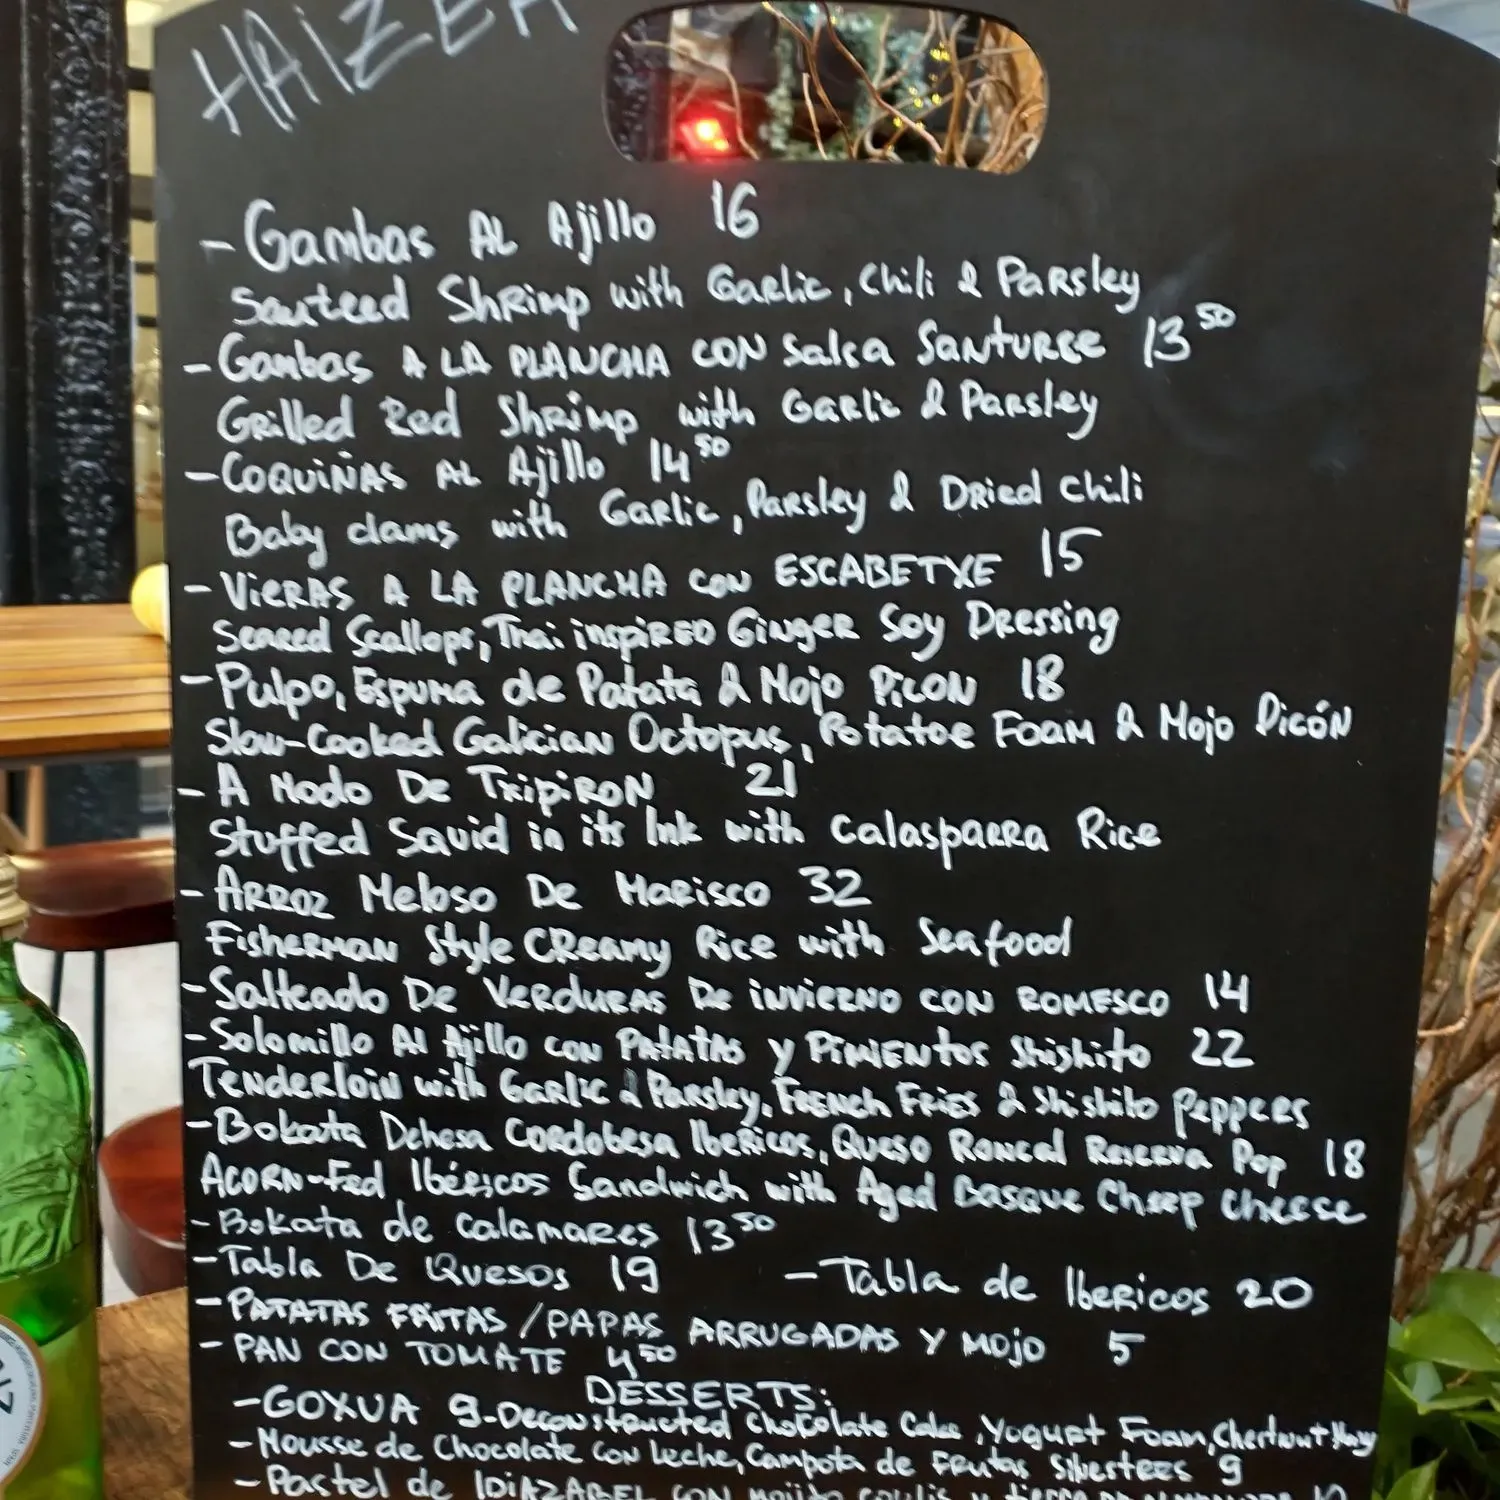 HAIZEA
- Gambas AL Ajillo 16
Sauteed Shrimp with Garlic, Chili & Parsley
- Gambas A LA PLANCHA CON Salsa Santurce 13 50
Grilled Red Shrimp with Garlic & Parsley
- COQUIÑAS AL Ajillo 14 50
Baby clams with Garlic, Parsley & Dried Chili
- VIERAS A LA PLANCHA CON ESCABETXE 15
Seared Scallops, Thai inspired Ginger Soy Dressing
- Pulpo, Espuma de Patata & Mojo Picon 18
Slow-Cooked Galician Octopus, Potatoe Foam & Mojo Picón
- A Modo De Txipiron 21
Stuffed Squid in its Ink with Calasparra Rice
- Arroz Meloso De Marisco 32
Fisherman Style Creamy Rice with Seafood
- Salteado De Verduras De invierno con Romesco 14
- Solomillo Al Ajillo con Patatas y Pimientos Shishito 22
Tenderloin with Garlic & Parsley, French Fries & Shishito Peppers
- Bokata Dehesa Cordobesa Ibericos, Queso Roncal Reserva Pop 18
Acorn-Fed Ibéricos Sandwich with Aged Basque Cheep Cheese
- Bokata de calamares 13 50
- Tabla De Quesos 19 - Tabla de Ibericos 20
- PATATAS FRITAS / PAPAS ARRUGADAS Y MOJO 5
- PAN CON TOMATE 4 50
DESSERTS:
- GOXUA 9 - Deconstructed Chocolate Cake, Yogurt Foam, Chestnut
- Mousse de Chocolate Con Leche, Campota de Frutas Silvestres 9
- Pastel de IDIAZABEL CON mojito coulis y tierra